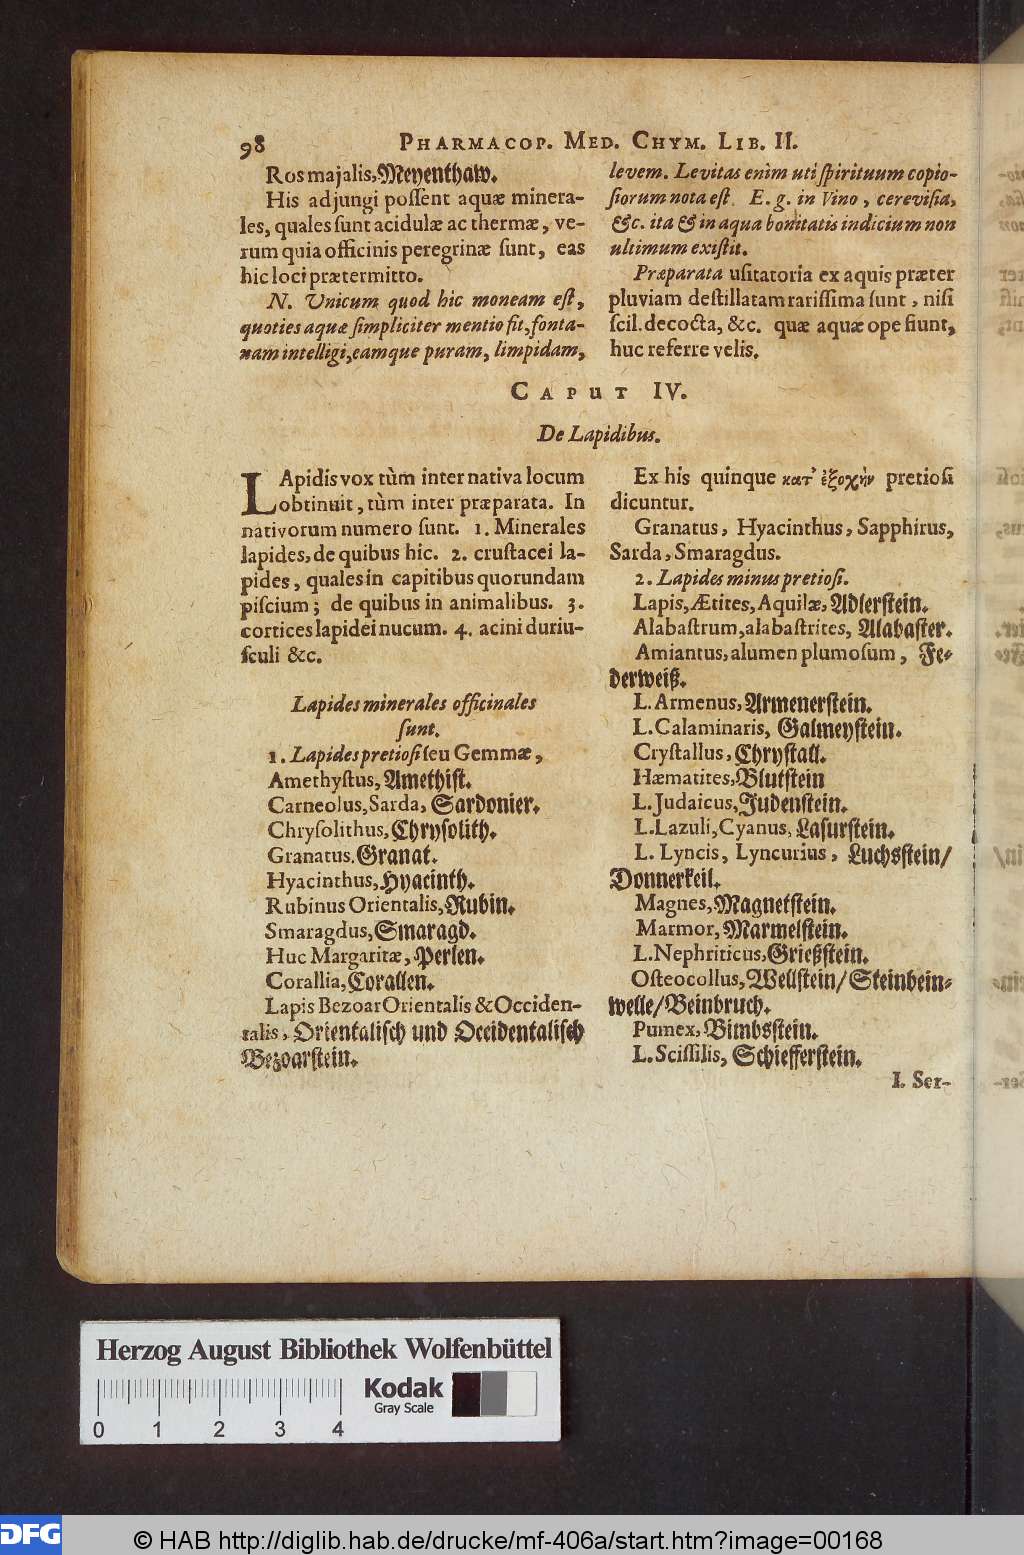 98 PHARMACOP. MED. CHYM. LIB. II.
Ros majalis, Meyenthaw.
His adjungi poſſent aquæ minera-
les, quales ſunt acidulæ ac thermæ, ve-
rum quia officinis peregrinæ ſunt, eas
hic loci prætermitto.
N. Unicum quod hic moneam eſt,
quoties aquæ ſimpliciter mentio fit, fonta-
nam intelligi, eamque puram, limpidam,
levem. Levitas enim uti ſpirituum copio-
ſiorum nota eſt. E. g. in Vino, cereviſia,
&c. ita & in aqua bonitatis indicium non
ultimum exiſtit.
Præparata uſitatoria ex aquis præter
pluviam deſtillatam rariſſima ſunt, niſi
ſcil. decocta, &c. quæ aquæ ope fiunt,
huc referre velis.
CAPUT IV.
De Lapidibus.
LApidis vox tùm inter nativa locum
obtinuit, tùm inter præparata. In
nativorum numero ſunt. 1. Minerales
lapides, de quibus hic. 2. cruſtacei la-
pides, quales in capitibus quorundam
piſcium; de quibus in animalibus. 3.
cortices lapidei nucum. 4. acini duriu-
ſculi &c.
Lapides minerales officinales
ſunt.
1. Lapides pretioſi ſeu Gemmæ,
Amethyſtus, Amethiſt.
Carneolus, Sarda, Sardonier.
Chryſolithus, Chryſolith.
Granatus. Granat.
Hyacinthus, Hyacinth.
Rubinus Orientalis, Rubin.
Smaragdus, Smaragd.
Huc Margaritæ, Perlen.
Corallia, Corallen.
Lapis Bezoar Orientalis & Occiden-
talis, Orientaliſch und Occidentaliſch
Bezoarſtein.
Ex his quinque κατ' ἐξοχὴν pretioſi
dicuntur.
Granatus, Hyacinthus, Sapphirus,
Sarda, Smaragdus.
2. Lapides minus pretioſi.
Lapis, Ætites, Aquilæ, Adlerſtein.
Alabaſtrum, alabaſtrites, Alabaſter.
Amiantus, alumen plumoſum, Fe-
derweiß.
L. Armenus, Armenerſtein.
L. Calaminaris, Galmeyſtein.
Cryſtallus, Chryſtall.
Hæmatites, Blutſtein
L. Judaicus, Judenſtein.
L. Lazuli, Cyanus, Laſurſtein.
L. Lyncis, Lyncurius, Luchsſtein/
Donnerkeil.
Magnes, Magnetſtein.
Marmor, Marmelſtein.
L. Nephriticus, Grießſtein.
Oſteocollus, Wellſtein/ Steinbein-
welle/ Beinbruch.
Pumex, Bimbsſtein.
L. Sciſſilis, Schiefferſtein.
I. Ser-
Herzog August Bibliothek Wolfenbüttel
Kodak
Gray Scale
0 1 2 3 4
DFG
© HAB http://diglib.hab.de/drucke/mf-406a/start.htm?image=00168